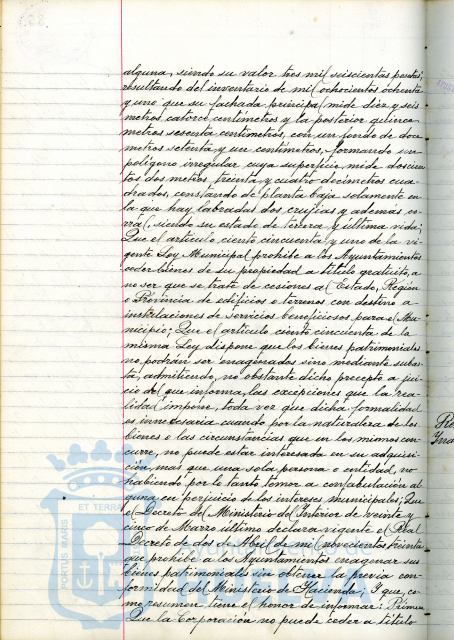 alguna, siendo su valor tres mil seiscientas pesetas;
resultando del inventario de mil ochocientos ochenta
y uno que su fachada principal mide diez y seis
metros catorce centímetros y la posterior quince
metros sesenta centímetros, con un fondo de doce
metros setenta y un centímetros, formando un
polígono irregular cuya superficie mide doscien
tos dos metros treinta y cuatro decímetros cua
drados, constando de planta baja solamente en
la que hay labradas dos crujías y además co-
rral, siendo su estado de tercera y última vida;
Que el artículo ciento cincuenta y uno de la vi-
gente Ley Municipal prohibe a los Ayuntamientos
ceder bienes de su propiedad a título gratuito, a
no ser que se trate de cesiones al Estado, Región
o Provincia de edificios o terrenos con destino a
instalaciones de servicios beneficiosos para el Mu-
nicipio; Que el artículo ciento cincuenta de la
misma Ley dispone que los bienes patrimoniales
no podrán ser enagenados sino mediante subas-
ta, admitiendo, no obstante dicho precepto a jui-
cio del que informa, las excepciones que la rea-
lidad impone, toda vez que dicha formalidad
es innecesaria cuando por la naturaleza de los
bienes o las circunstancias que en los mismos con-
curre, no puede estar interesada en su adquisi-
ción, más que una sola persona o entidad, no
habiendo por lo tanto temor a confabulación al
guna en perjuicio de los intereses municipales; Que
el Decreto del Ministerio del Interior de veinte y
cinco de Marzo último declara vigente el Real
Decreto de dos de Abril de mil novecientos treinta
que prohibe a los Ayuntamientos enagenar sus
bienes patrimoniales sin obtener la previa con-
formidad del Ministerio de Hacienda; Y que, co-
mo resumen tiene el honor de informar: Primero
Que la Corporación no puede ceder a título
ET TERRA
PORTUS MARIS